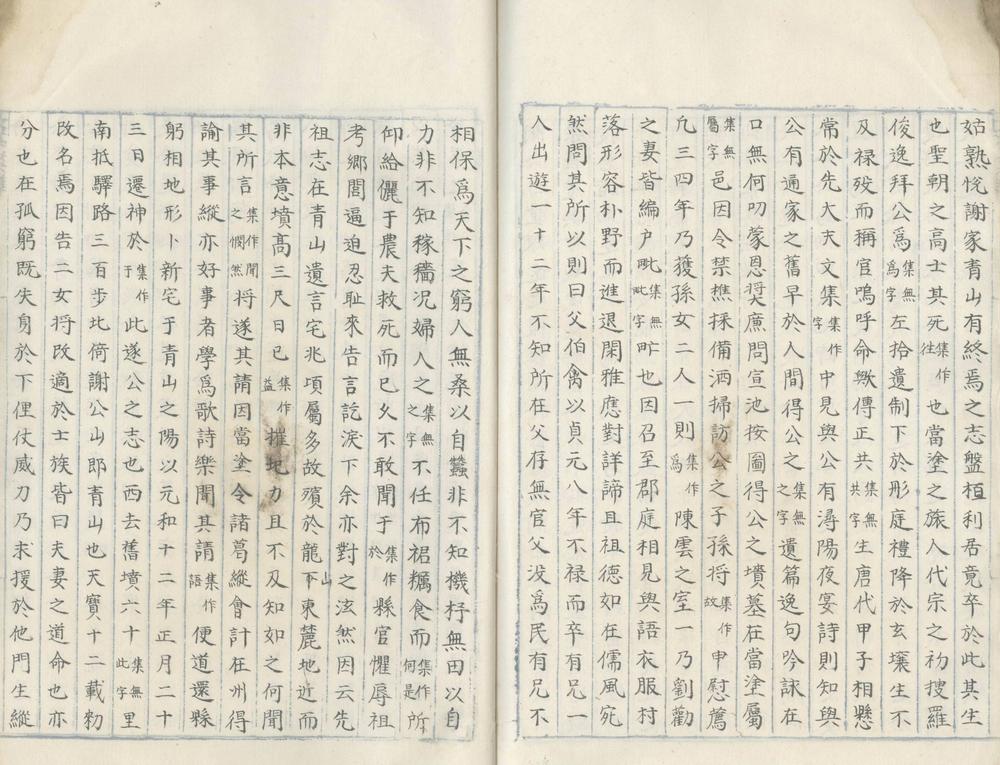 姑熟悅謝家青山有終焉之志盤桓利居竟卒於此其生
也聖朝之高士其死集作徃也當塗之旅人代宗之初搜羅
俊逸拜公爲集無爲字左拾遺制下於彤庭禮降於玄壤生不
及禄殁而稱官嗚呼命歟傳正共集無共字生唐代甲子相懸
常於先大夫文集集作字中見與公有潯陽夜宴詩則知與
公有通家之舊早於人間得公之集無之字遺篇逸句吟詠在
口無何叨蒙恩奨廉問宣池按圖得公之墳墓在當塗屬
集無屬字邑因令禁樵採備洒掃訪公之子孫將集作故申慰薦
凢三四年乃獲孫女二人一則集作爲陳雲之室一乃劉勸
之妻皆編户甿集無甿字甿也因召至郡庭相見與語衣服村
落形容朴野而進退閑雅應對詳諦且祖德如在儒風宛
然問其所以則曰父伯禽以貞元八年不禄而卒有兄一
人出遊一十二年不知所在父存無官父没爲民有兄不
相保爲天下之窮人無桑以自蠶非不知機杼無田以自
力非不知稼穡况婦人之集無之字不任布裙糲食而集作何是所
仰給儷于農夫救死而已乆不敢聞于集作於縣官懼辱祖
考鄉閭逼迫忍耻來告言訖淚下余亦對之泫然因云先
祖志在青山遺言宅兆頃屬多故殯於龍山下東麓地近而
非本意墳髙三尺日已集作益摧圯力且不及知如之何聞
其所言集作聞之憫然將遂其請因當塗令諸葛縱會計在州得
諭其事縱亦好事者學爲歌詩樂聞其請集作語便道還縣
躬相地形卜新宅于青山之陽以元和十二年正月二十
三日遷神於集作于此遂公之志也西去舊墳六十集無此字里
南抵驛路三百步北倚謝公山郎青山也天寶十二載勑
改名焉因告二女將改適於士族皆曰夫妻之道命也亦
分也在孤窮既失身於下俚仗威力乃求援於他門生縱